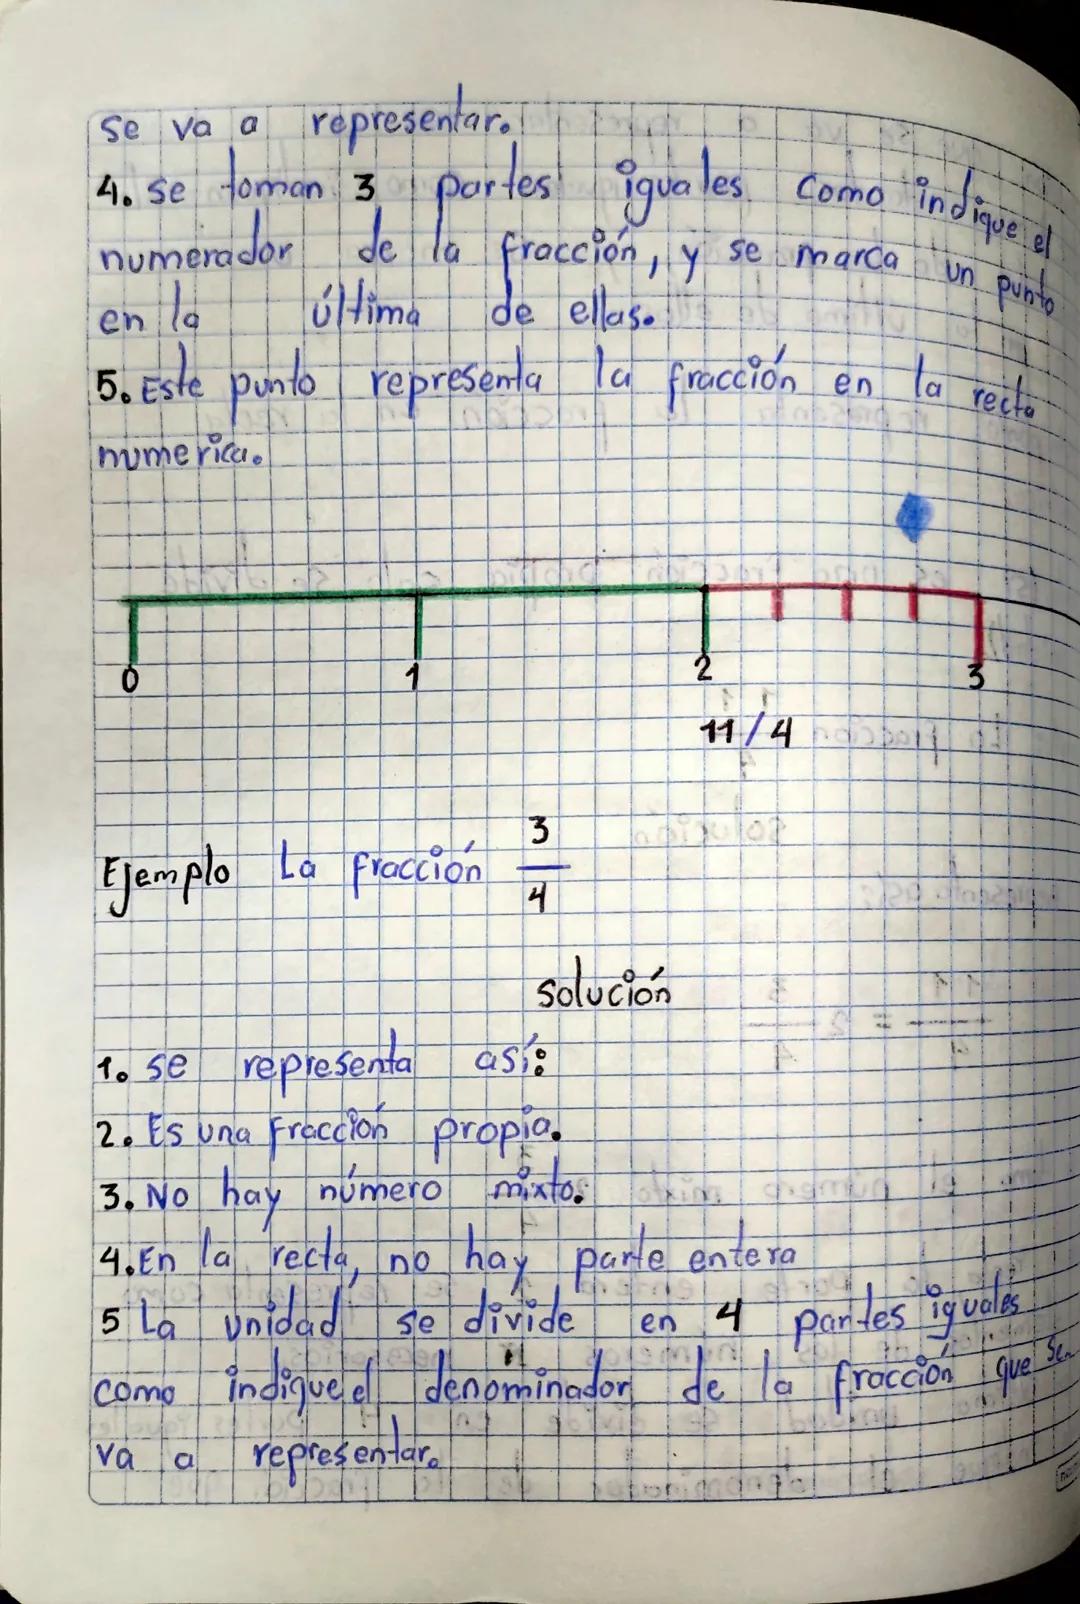 se va a representar.
4. se toman 3 partes iguales como indique el
numerador de la fracción, y se marca un punto
en la última de ellas.
5. Este punto representa la fracción en la recta
numerica.
0 1 2 3
11/4
Ejemplo La fracción 3/4
solución
1. se representa así:
2. Es una fracción propia.
3. No hay número mixto.
4. En la recta, no hay parte entera
5 La unidad se divide en 4 partes iguales
como indique el denominador de la fracción que se
va a representar.